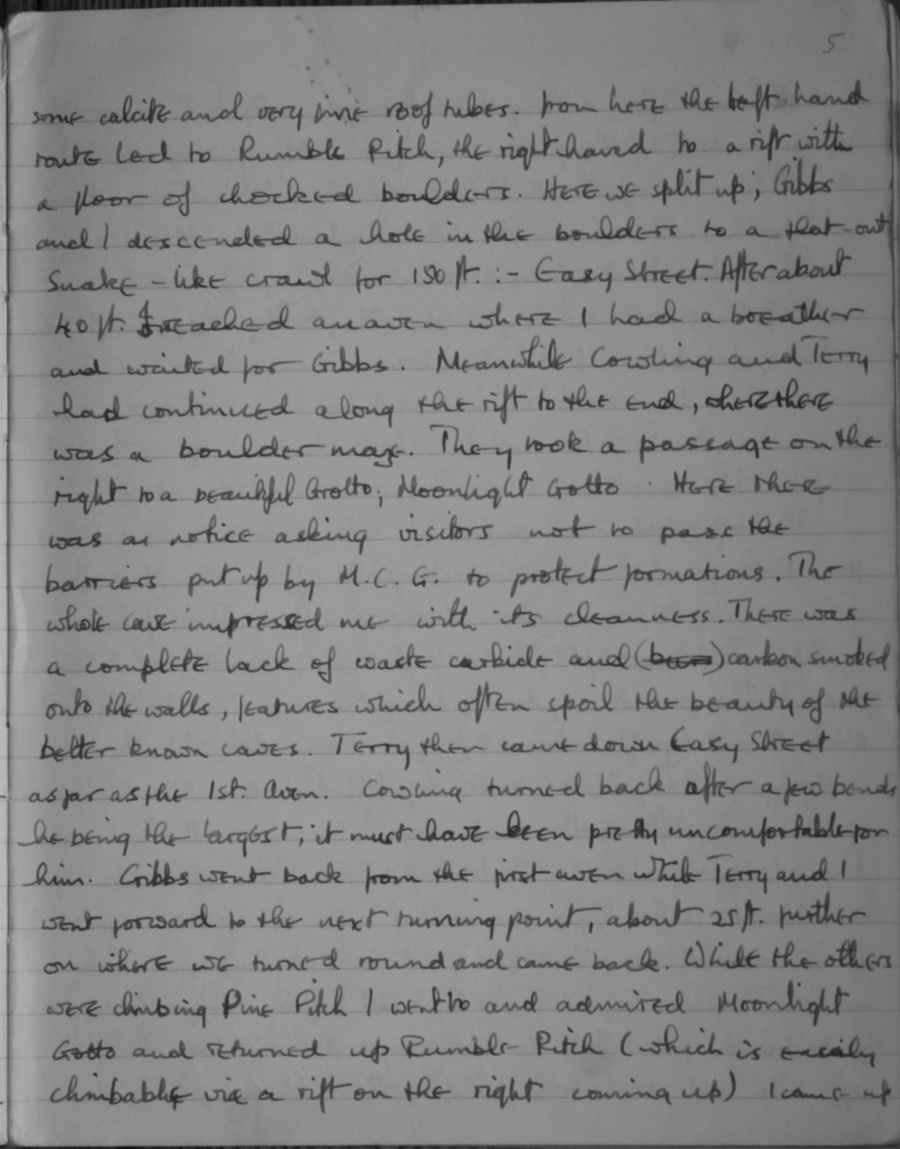 5
some calcite and very fine roof tubes. From here the left hand
route led to Rumble Pitch, the right hand to a rift with
a floor of chocked boulders. Here we split up; Gibbs
and I descended a hole in the boulders to a flat-out
Snake-like crawl for 150 ft. :- Easy Street. After about
40 ft. I reached an aven where I had a breather
and waited for Gibbs. Meanwhile Cowling and Terry
had continued along the rift to the end, where there
was a boulder maze. They took a passage on the
right to a beautiful Grotto; Moonlight Gotto. Here there
was a notice asking visitors not to pass the
barriers put up by M.C.G. to protect formations. The
whole cave impressed me with its cleanness. There was
a complete lack of waste carbide and (been) carbon smoked
onto the walls, features which often spoil the beauty of the
better known caves. Terry then came down Easy Street
as far as the 1st. Aven. Cowling turned back after a few bends
he being the largest; it must have been pretty uncomfortable for
him. Gibbs went back from the first aven while Terry and I
went forward to the next turning point, about 25 ft. further
on where we turned round and came back. While the others
were climbing Pine Pitch I went to and admired Moonlight
Gotto and returned up Rumble Pitch (which is easily
climbable via a rift on the right coming up) I came up